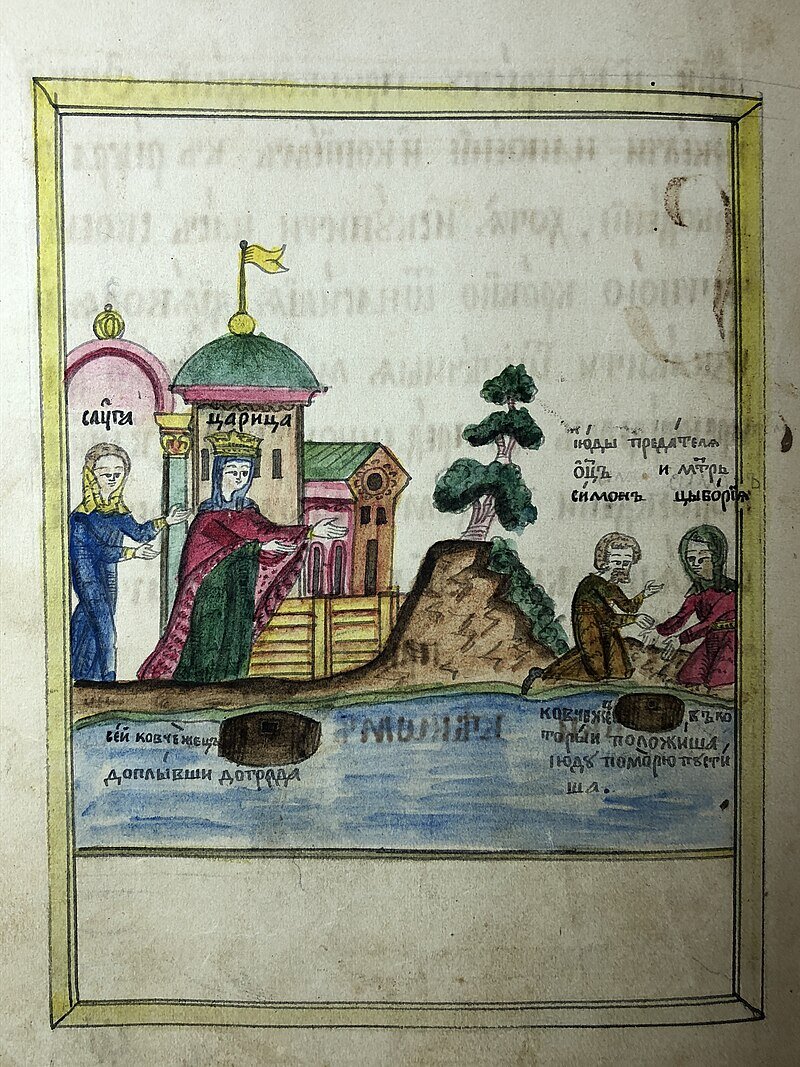 слꙋга
царица
іюды предателѧ
ѻц҃ъ и мт҃рь
симонъ цыборїѧ
сей ковчежецъ
доплывши дограда
ковчеже въко
торый положиша
іюдꙋ поморю пꙋсти
ша.